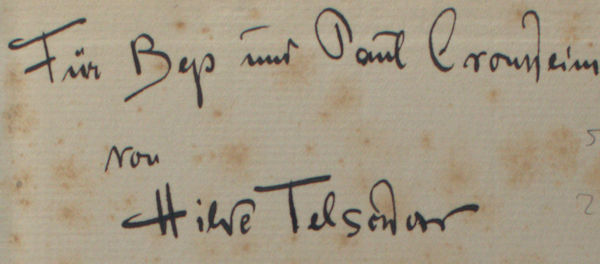 Für Bep und Paul Cronheim
von
Hilde Telschow